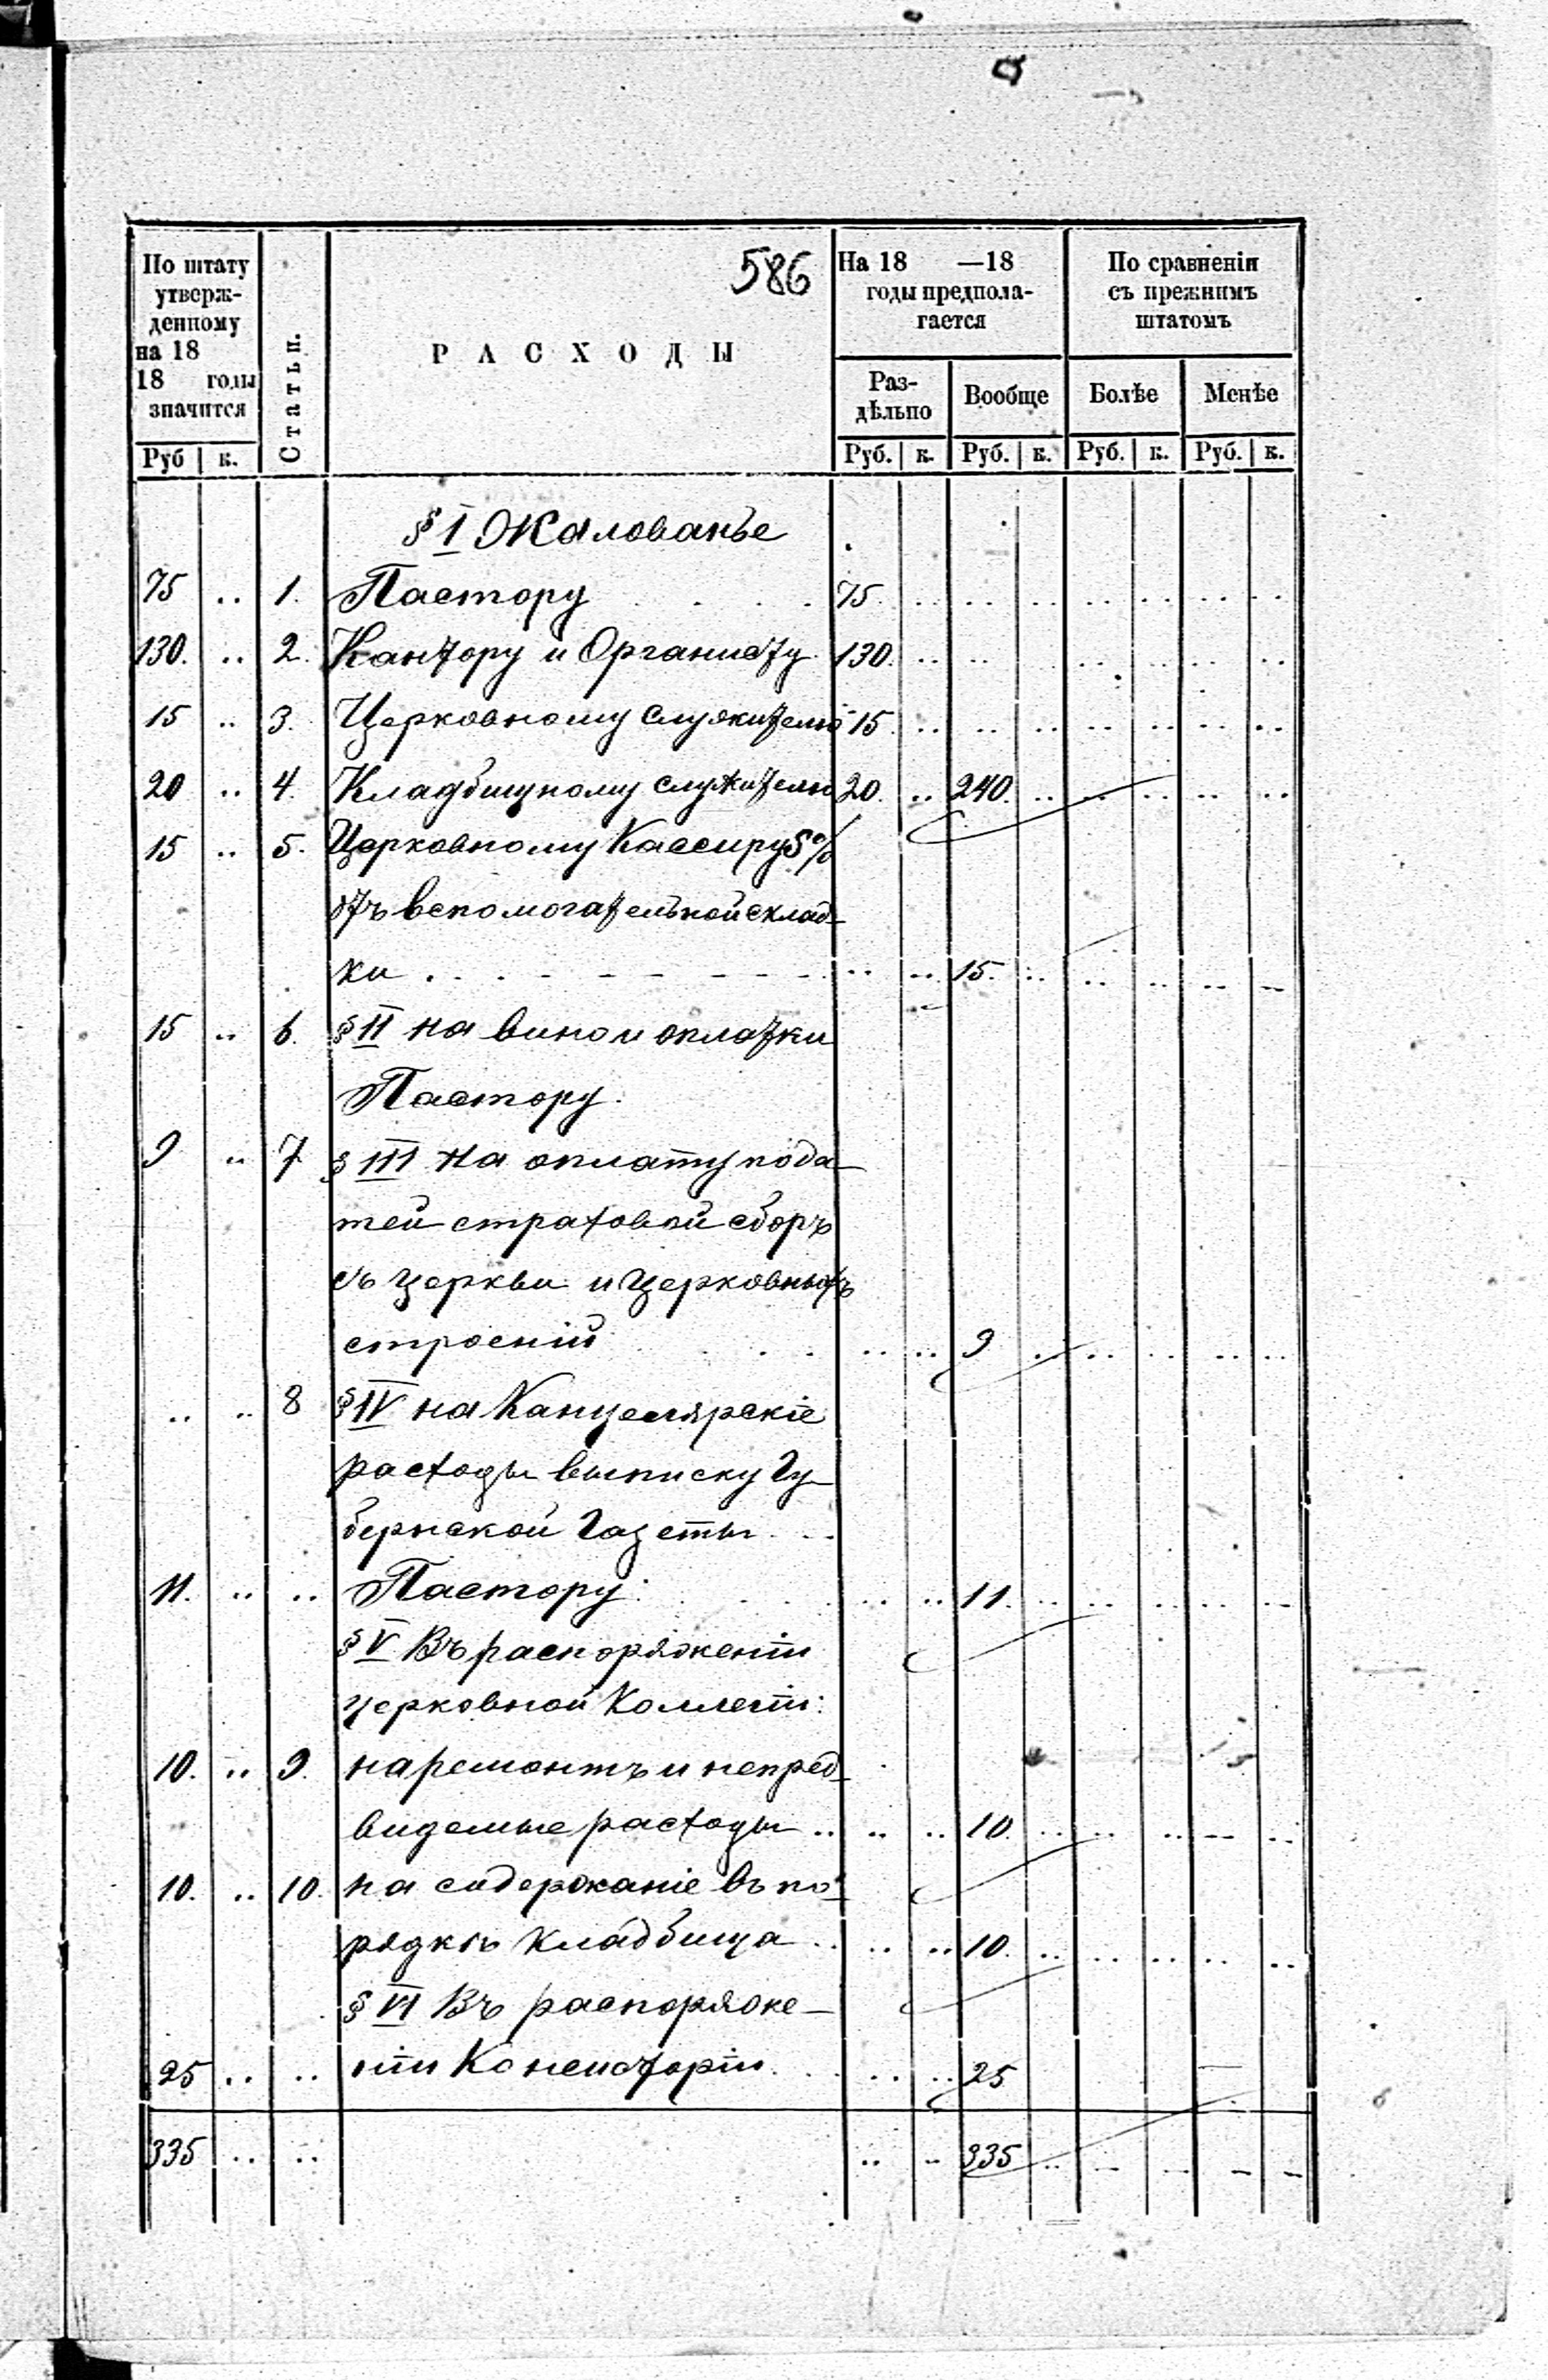 586
По штату утверж- денному на 18 18 годы значится
Статьи.
РАСХОДЫ
На 18 —18 годы предпола- гается
По сравненіи съ прежнимъ штатомъ
Раз- дѣльно Вообще Болѣе Менѣе
Руб к. Руб. к. Руб. к. Руб. к. Руб. к.
§ I Жалованье
75 .. 1. Пастору . . . . 75. .. .. .. .. .. .. ..
130. .. 2. Кантору и Органисту 130. .. .. .. .. .. ..
15 .. 3. Церковному служителю 15. .. .. .. .. .. .. ..
20 .. 4. Кладбищному служителю 20. .. 240. .. .. .. .. ..
15 .. 5. Церковному Кассиру 5%
отъ вспомогательной склад-
ки . . - - - - - - .. .. 15. .. .. .. .. ..
15 .. 6. § II на вино и оплатки
Пастору.
9 .. 7 § III На оплату пода-
тей страховой сборъ
съ церкви и церковныхъ
строеній . . . .. .. 9 . .. .. .. ..
.. .. 8 § IV на Канцелярскіе
расходы выписку Гу-
бернской Газеты . . .
11. .. .. Пастору: . . . .. .. 11. .. .. .. .. ..
§ V Въ распоряженіи
церковной Коллегіи:
10. .. 9. на ремонтъ и непред-
видемые расходы .. .. .. 10. .. .. .. .. ..
10. .. 10. на содержаніе въ по-
рядкѣ кладбища . .. .. 10. .. .. .. .. ..
§ VI Въ распоряже-
25 .. .. ніи Консисторіи . . .. .. 25
335 .. .. .. .. 335 .. .. .. .. ..